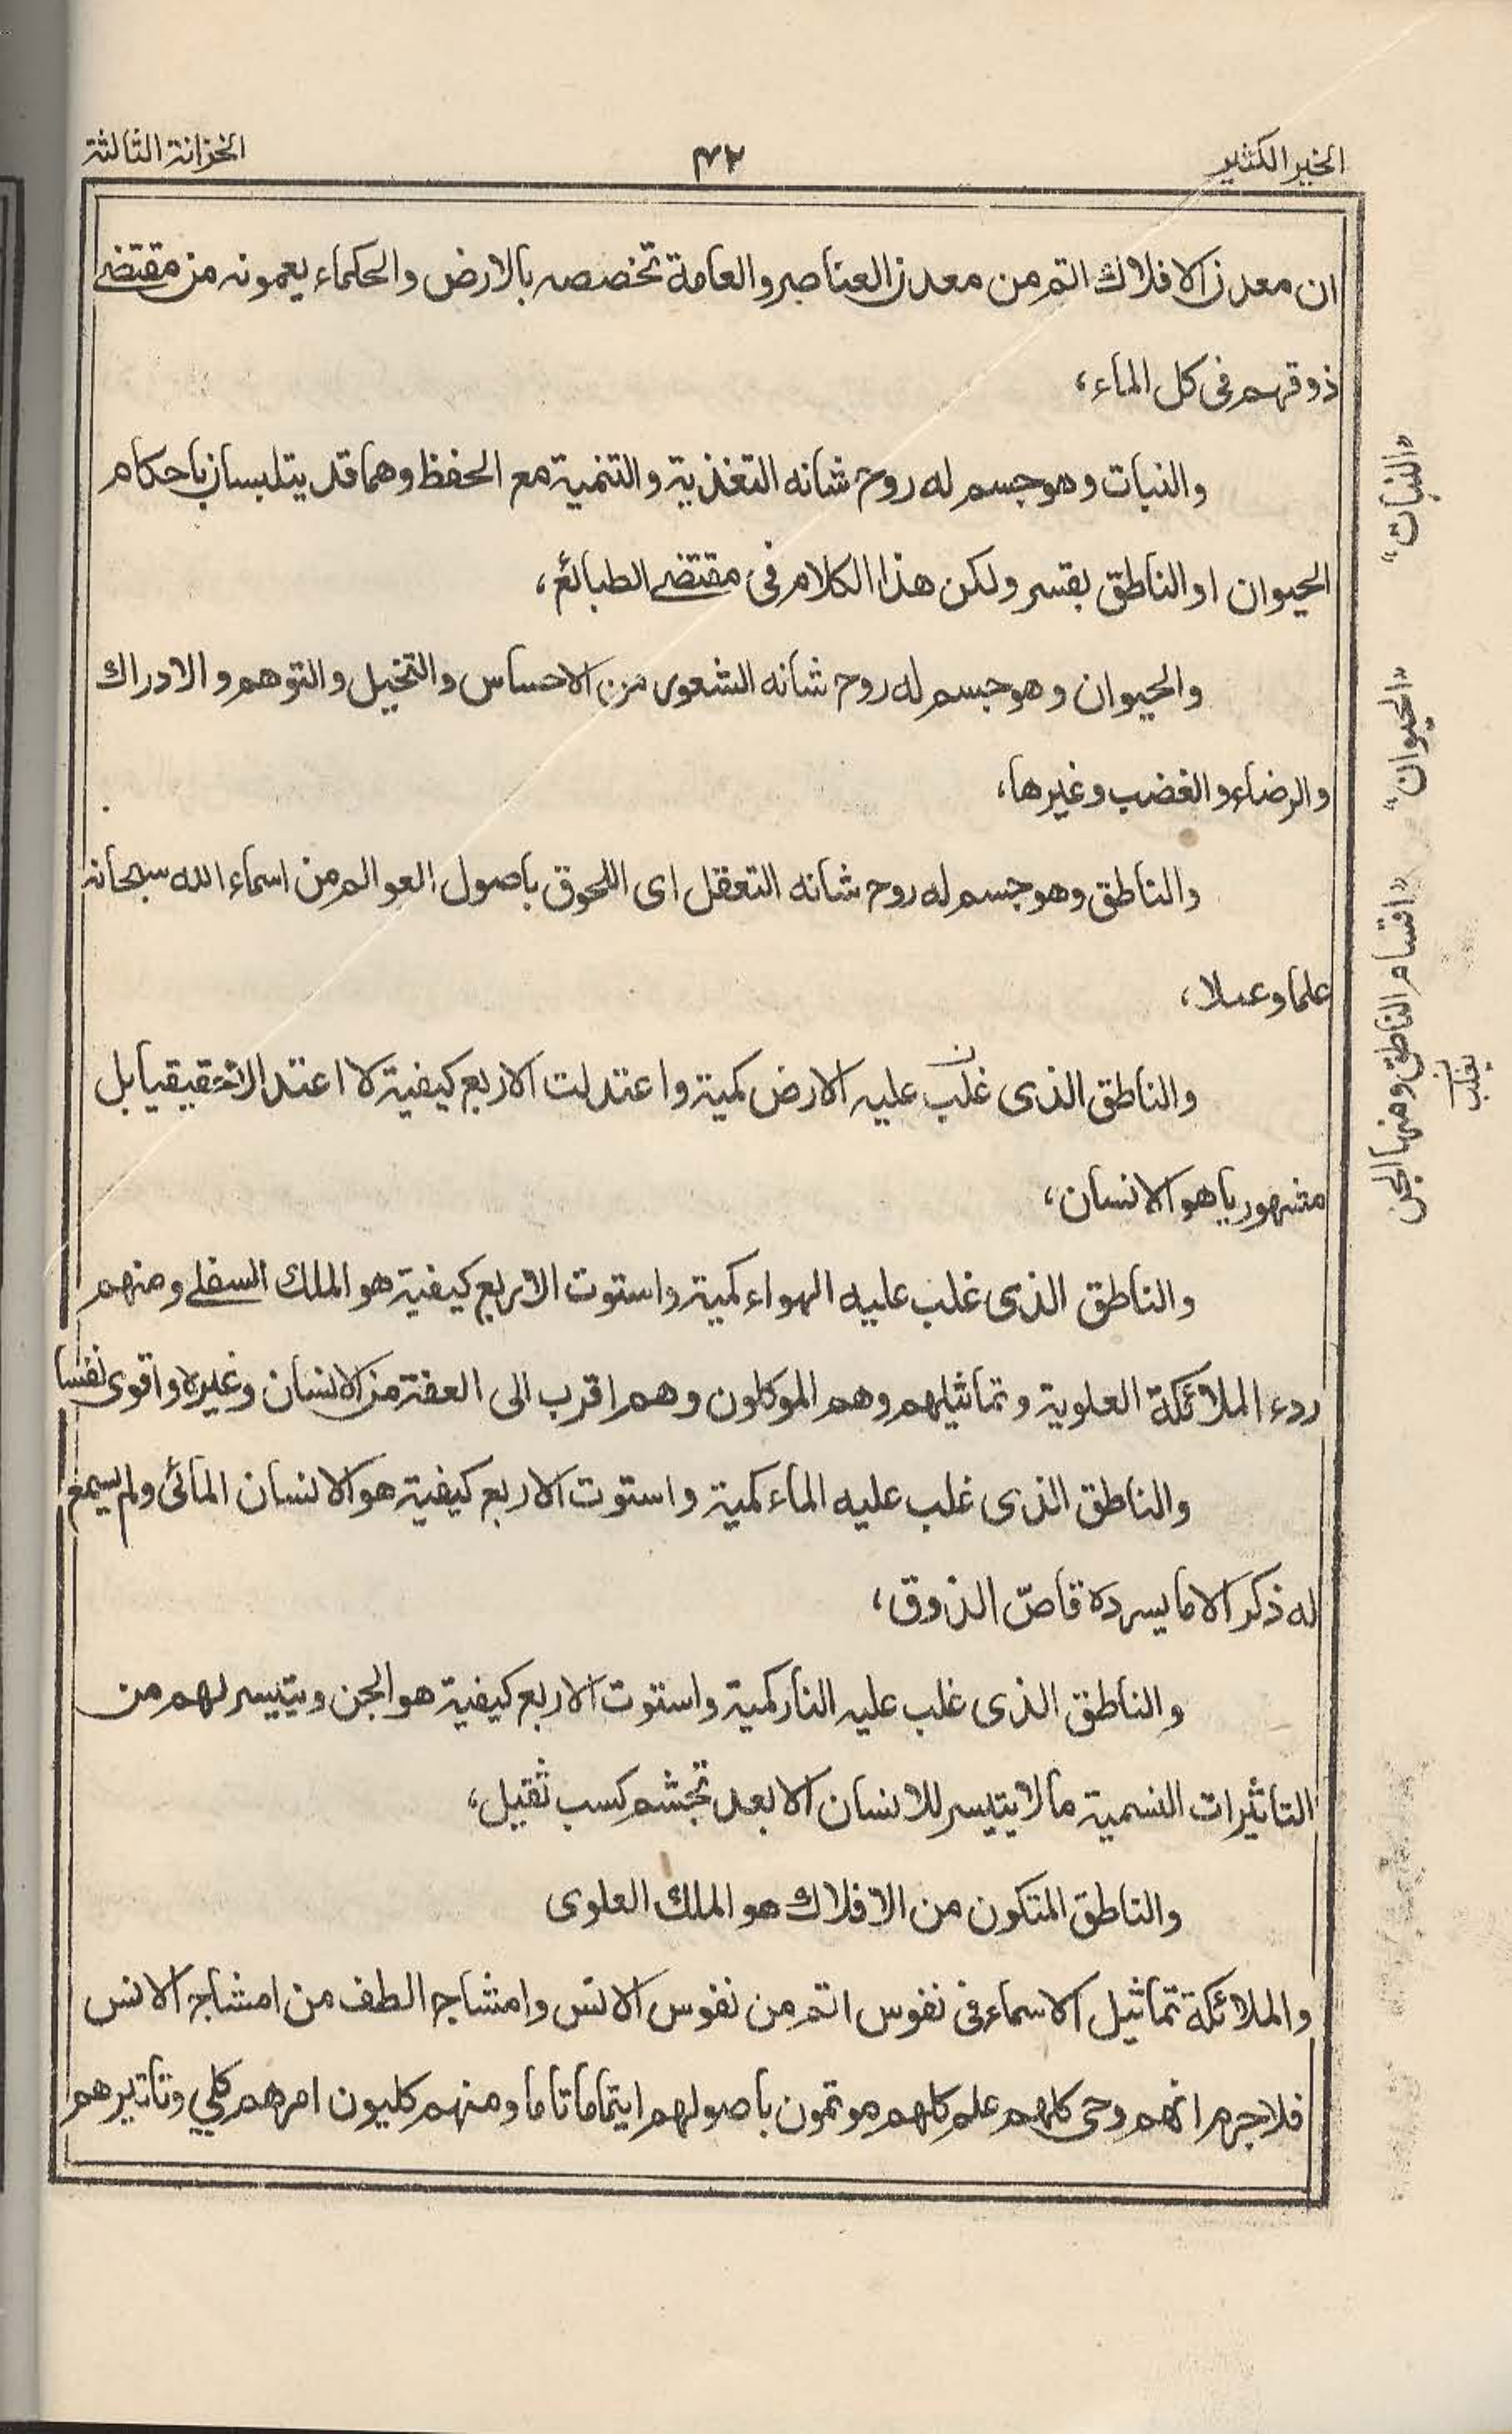 الخير الكثير
۴۲
الخزانة الثالثة
ان معدن الافلاك اتم من معدن العناصر والعامة تخصصه بالارض والحكماء يعمونه من مقتضى
ذوقهم فى كل الماء،
والنبات وهو جسم له روح شانه التغذية والتنمية مع الحفظ وهما قد يتلبسان باحكام
الحيوان او الناطق بقسر ولكن هذا الكلام فى مقتضى الطبائع،
والحيوان وهو جسم له روح شانه الشعور من الاحساس والتخيل والتوهم والادراك
والرضاء والغضب وغيرها،
والناطق وهو جسم له روح شانه التعقل اى اللحوق باصول العوالم من اسماء الله سبحانه
علما وعملا،
والناطق الذى غلب عليه الارض كمية واعتدلت الاربع كيفية لا اعتدالا حقيقيا بل
مشهوريا هو الانسان،
والناطق الذى غلب عليه الهواء كمية واستوت الاربع كيفية هو الملك السفلى ومنهم
ردء الملائكة العلوية وتماثيلهم وهم الموكلون وهم اقرب الى العفة من الانسان وغيره واقوى نفسا
والناطق الذى غلب عليه الماء كمية واستوت الاربع كيفية هو الانسان المائى ولم يسمع
له ذكر الا ما يسرده قاصّ الذوق،
والناطق الذى غلب عليه النار كمية واستوت الاربع كيفية هو الجن ويتيسر لهم من
التاثيرات النسمية ما لا يتيسر للانسان الا بعد تجشم كسب ثقيل،
والناطق المتكون من الافلاك هو الملك العلوى
والملائكة تماثيل الاسماء فى نفوس اتم من نفوس الانس وامشاج الطف من امشاج الانس
فلا جرم انهم وحى كلهم علم كلهم موتمون باصولهم ايتماما تاما ومنهم كليون امرهم كلي وتاثيرهم
"النبات"
"الحيوان"
"اقسام الناطق ومنها الجن
يغلب